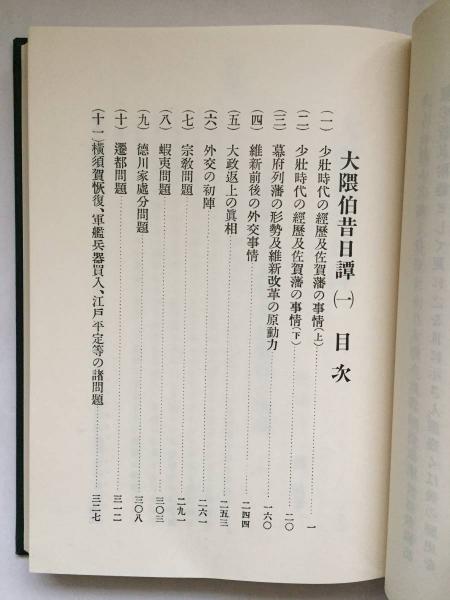 大隈伯昔日譚(一) 目次
(一) 少壯時代の經歷及佐賀藩の事情(上)……一
(二) 少壯時代の經歷及佐賀藩の事情(下)……二〇
(三) 幕府列藩の形勢及維新改革の原動力……一六〇
(四) 維新前後の外交事情……二四四
(五) 大政返上の眞相……二五三
(六) 外交の初陣……二六一
(七) 宗敎問題……二九一
(八) 蝦夷問題……三〇三
(九) 德川家處分問題……三〇八
(十) 遷都問題……三一二
(十一) 橫須賀恢復、軍艦兵器買入、江戶平定等の諸問題……三二七